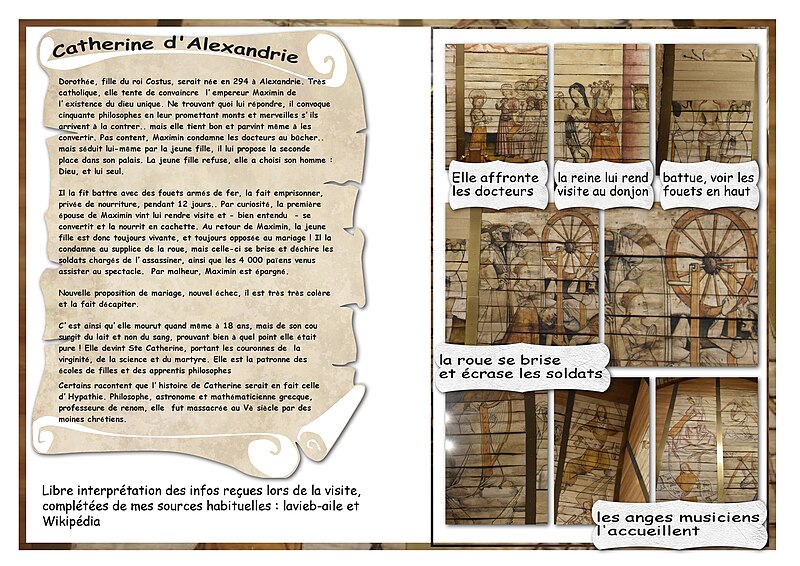 Catherine d'Alexandrie
Dorothée, fille du roi Costus, serait née en 294 à Alexandrie. Très
catholique, elle tente de convaincre l'empereur Maximin de
l'existence du dieu unique. Ne trouvant quoi lui répondre, il convoque
cinquante philosophes en leur promettant monts et merveilles s'ils
arrivent à la contrer.. mais elle tient bon et parvint même à les
convertir. Pas content, Maximin condamne les docteurs au bûcher..
mais séduit lui-même par la jeune fille, il lui propose la seconde
place dans son palais. La jeune fille refuse, elle a choisi son homme :
Dieu, et lui seul.
Il la fit battre avec des fouets armés de fer, la fait emprisonner,
privée de nourriture, pendant 12 jours.. Par curiosité, la première
épouse de Maximin vint lui rendre visite et - bien entendu - se
convertit et la nourrit en cachette. Au retour de Maximin, la jeune
fille est donc toujours vivante, et toujours opposée au mariage ! Il la
condamne au supplice de la roue, mais celle-ci se brise et déchire les
soldats chargés de l'assassiner, ainsi que les 4 000 païens venus
assister au spectacle. Par malheur, Maximin est épargné.
Nouvelle proposition de mariage, nouvel échec, il est très très colère
et la fait décapiter.
C'est ainsi qu'elle mourut quand même à 18 ans, mais de son cou
surgit du lait et non du sang, prouvant bien à quel point elle était
pure ! Elle devint Ste Catherine, portant les couronnes de la
virginité, de la science et du martyre. Elle est la patronne des
écoles de filles et des apprentis philosophes
Certains racontent que l'histoire de Catherine serait en fait celle
d'Hypathie. Philosophe, astronome et mathématicienne grecque,
professeure de renom, elle fut massacrée au Vè siècle par des
moines chrétiens.
Libre interprétation des infos reçues lors de la visite,
complétées de mes sources habituelles : lavieb-aile et
Wikipédia
Elle affronte
les docteurs
la reine lui rend
visite au donjon
battue, voir les
fouets en haut
la roue se brise
et écrase les soldats
les anges musiciens
l'accueillent